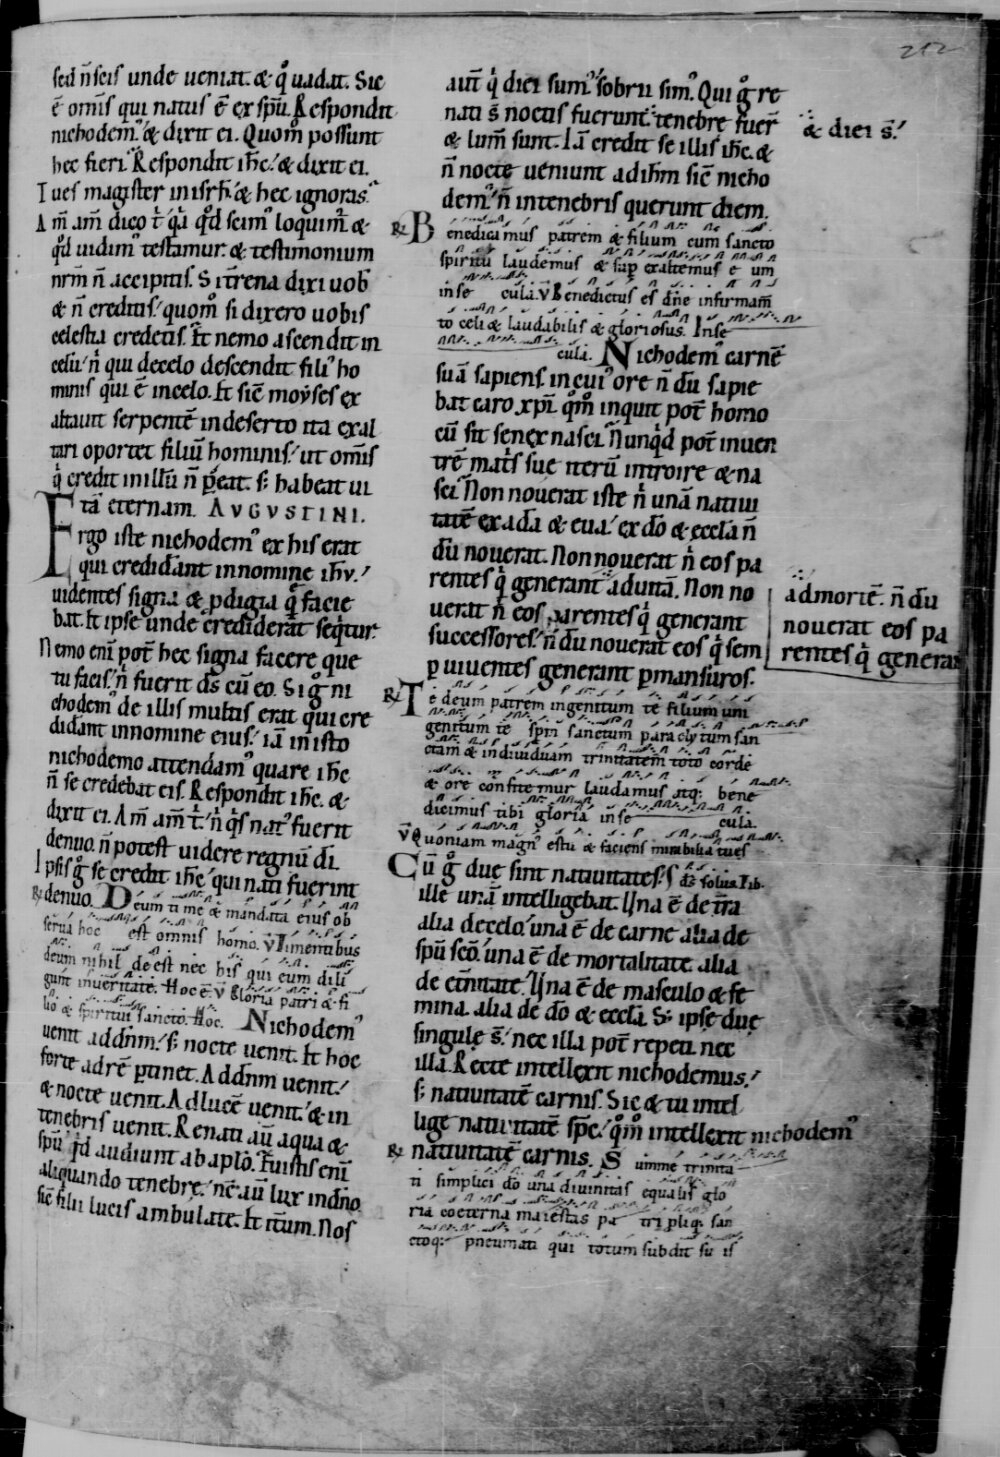 212
sed n̄ scis unde ueniat. & q̊ uadat. Sic
ē om̄is qui natus ē ex sp̄u. Respondit
nichodem᷒ & dixit ei. Quom̊ possunt
hec fieri. Respondit ih̄c. & dixit ei.
Tu es magister in isrl̄ & hec ignoras.
Am̄ am̄ dico t̄ q̇a qd̄ scim᷒ loquim᷒ &
qd̄ uidim᷒ testamur. & testimonium
nr̄m n̄ accipitis. Si t̄rena dixi uob̄
& n̄ creditis. quom̊ si dixero uobis
celestia credetis. Et nemo ascendit in
celū. n̄ qui de celo descendit fili᷒ ho
minis qui ē in celo. Et sic̄ moẏses ex
altauit serpentē in deserto ita exal
tari oportet filiū hominis. ut om̄is
q̇ credit in illū n̄ p̄eat. s; habeat ui
tā eternam. AVGVSTINI.
Ergo iste nichodem᷒ ex his erat
qui crediderant in nomine ih̄u.
uidentes signa & p̄digia q̄ facie
bat. Et ipse unde crediderat seq̇tur.
Nemo eni᷒ pot̄ hec signa facere que
tu facis. n̄ fuerit dš cū eo. Si g̊ ni
chodem᷒ de illis multis erat qui cre
didant in nomine eius. iā in isto
nichodemo attendam᷒ quare ih̄c
n̄ se credebat eis. Respondit ih̄c. &
dixit ei. Am̄ am̄ t̄. n̄ q̇s nat᷒ fuerit
denuo. n̄ potest uidere regnū dī.
Ipsis g̊ se credit ih̄c. qui nati fuerint
℟ denuo. Deum time & mandata eius ob
serua hoc est omnis homo. ℣ Timentibus
deum nihil deest nec his qui eum dili
gunt in ueritate. Hoc ē. ℣ Gloria patri & fi
lio & spiritui sancto. Hoc. Nichodem᷒
uenit ad dn̄m. s; nocte uenit. Et hoc
forte ad rē p̄tinet. Ad dn̄m uenit.
& nocte uenit. Ad lucē uenit. & in
tenebris uenit. Renati aū aqua &
sp̄u q̇d audiunt ab aplo. Fuistis eni᷒
aliquando tenebre. nc̄ aū lux in dn̄o
sic̄ filii lucis ambulate. Et itm̄. Nos
aūt q̇ diei sum᷒ sobrii sim᷒. Qui g̊ re
nati s̄ noctis fuerunt. tenebre fuer̄
& diei s̄.
& lum̄ sunt. Iā credit se illis ih̄c. &
n̄ nocte ueniunt ad ih̄m sic̄ nicho
dem᷒. n̄ in tenebris querunt diem.
℟ Benedicamus patrem & filium cum sancto
spiritu laudemus & sup̄ exaltemus e um
in se cula. ℣ Benedictus es dn̄e in firmam̄
to celi & laudabilis & gloriosus. In se
cula. Nichodem᷒ carnē
suā sapiens. in cui᷒ ore n̄ dū sapie
bat caro xp̄i. qm̊ inquit pot̄ homo
cū sit senex nasci. Nunqd̄ pot̄ in uen
trē mat̄s sue iterū introire & na
sci. Non nouerat iste n̄ unā natiui
tatē ex adā & eua. ex dō & eccl̄a n̄
dū nouerat. Non nouerat n̄ eos pa
rentes q̇ generant ad uitā. Non no
admortē. n̄ dū
nouerat eos pa
rentes q̇ generan
uerat n̄ eos parentes q̇ generant
successores. n̄ dū nouerat eos q̇ sem
p̄ uiuentes generant p̄mansuros.
℟ Te deum patrem ingenitum te filium uni
genitum te spm̄ sanctum paraclytum san
ctam & indiuiduam trinitatem toto corde
& ore confitemur laudamus atq; bene
dicimus tibi gloria in se cula.
℣ Quoniam magn᷒ es tu & faciens mirabilia tu es
dš solus. Tib.
Cū g̊ due sint natiuitates.
ille unā intelligebat. Una ē de t̄ra
alia de celo. una ē de carne alia de
sp̄u sc̄o. una ē de mortalitate. alia
de et̄nitate. Una ē de masculo & fe
mina. alia de dō & eccl̄a. S; ipse due
singule s̄. nec illa pot̄ repeti. nec
illa. Recte intellexit nichodemus.
s; natiuitatē carnis. Sic & tu intel
lige natiuitatē sp̄c. qm̊ intellexit nichodem᷒
natiuitatē carnis. ℟ Summe trinita
ti simplici dō una diuinitas equalis glo
ria coeterna maiestas pa tri pliq; san
ctoq; pneumati qui totum subdit su is